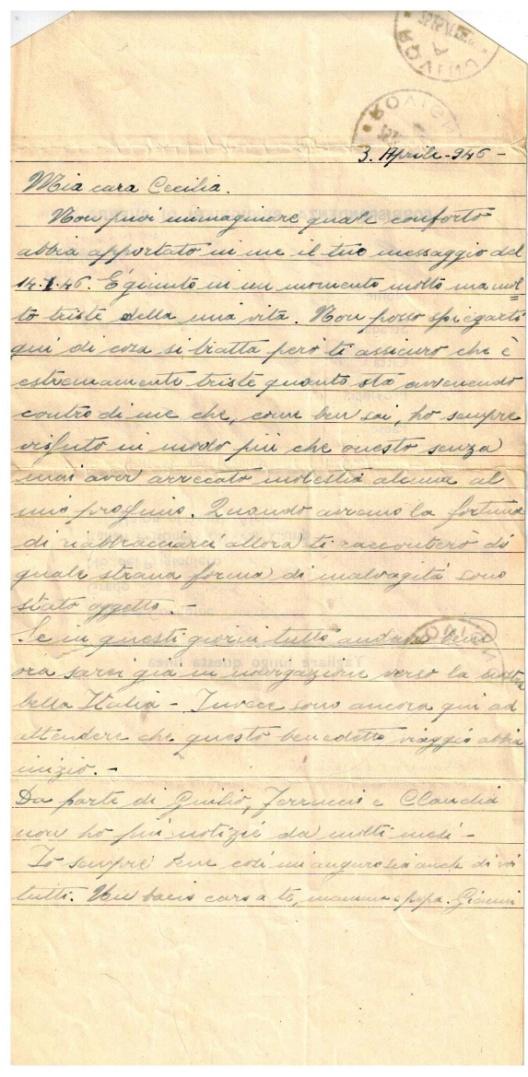 ROVIGO
3. Aprile-946-
Mia cara Cecilia.
Non puoi immaginare quale conforto
abbia apportato in me il tuo messaggio del
14.1.46. È giunto in un momento molto ma mol=
to triste della mia vita. Non posso spiegarti
qui di cosa si tratta però ti assicuro che è
estremamente triste quanto sta avvenendo
contro di me che, come ben sai, ho sempre
vissuto in modo più che onesto senza
mai aver arrecato molestia alcuna al
mio prossimo. Quando avremo la fortuna
di riabbracciarci allora ti racconterò di
quale strana forma di malvagità sono
stato oggetto.-
Se in questi giorni tutto andava bene
ora sarei già in navigazione verso la nostra
bella Italia - Invece sono ancora qui ad
attendere che questo benedetto viaggio abbia
inizio.-
Da parte di Giulio, Ferruccio e Claudia
non ho più notizie da molti mesi-
Io sempre bene così mi auguro sia anche di voi
tutti. Un bacio caro a te, mamma e papà. Gianni
Tagliare lungo questa linea